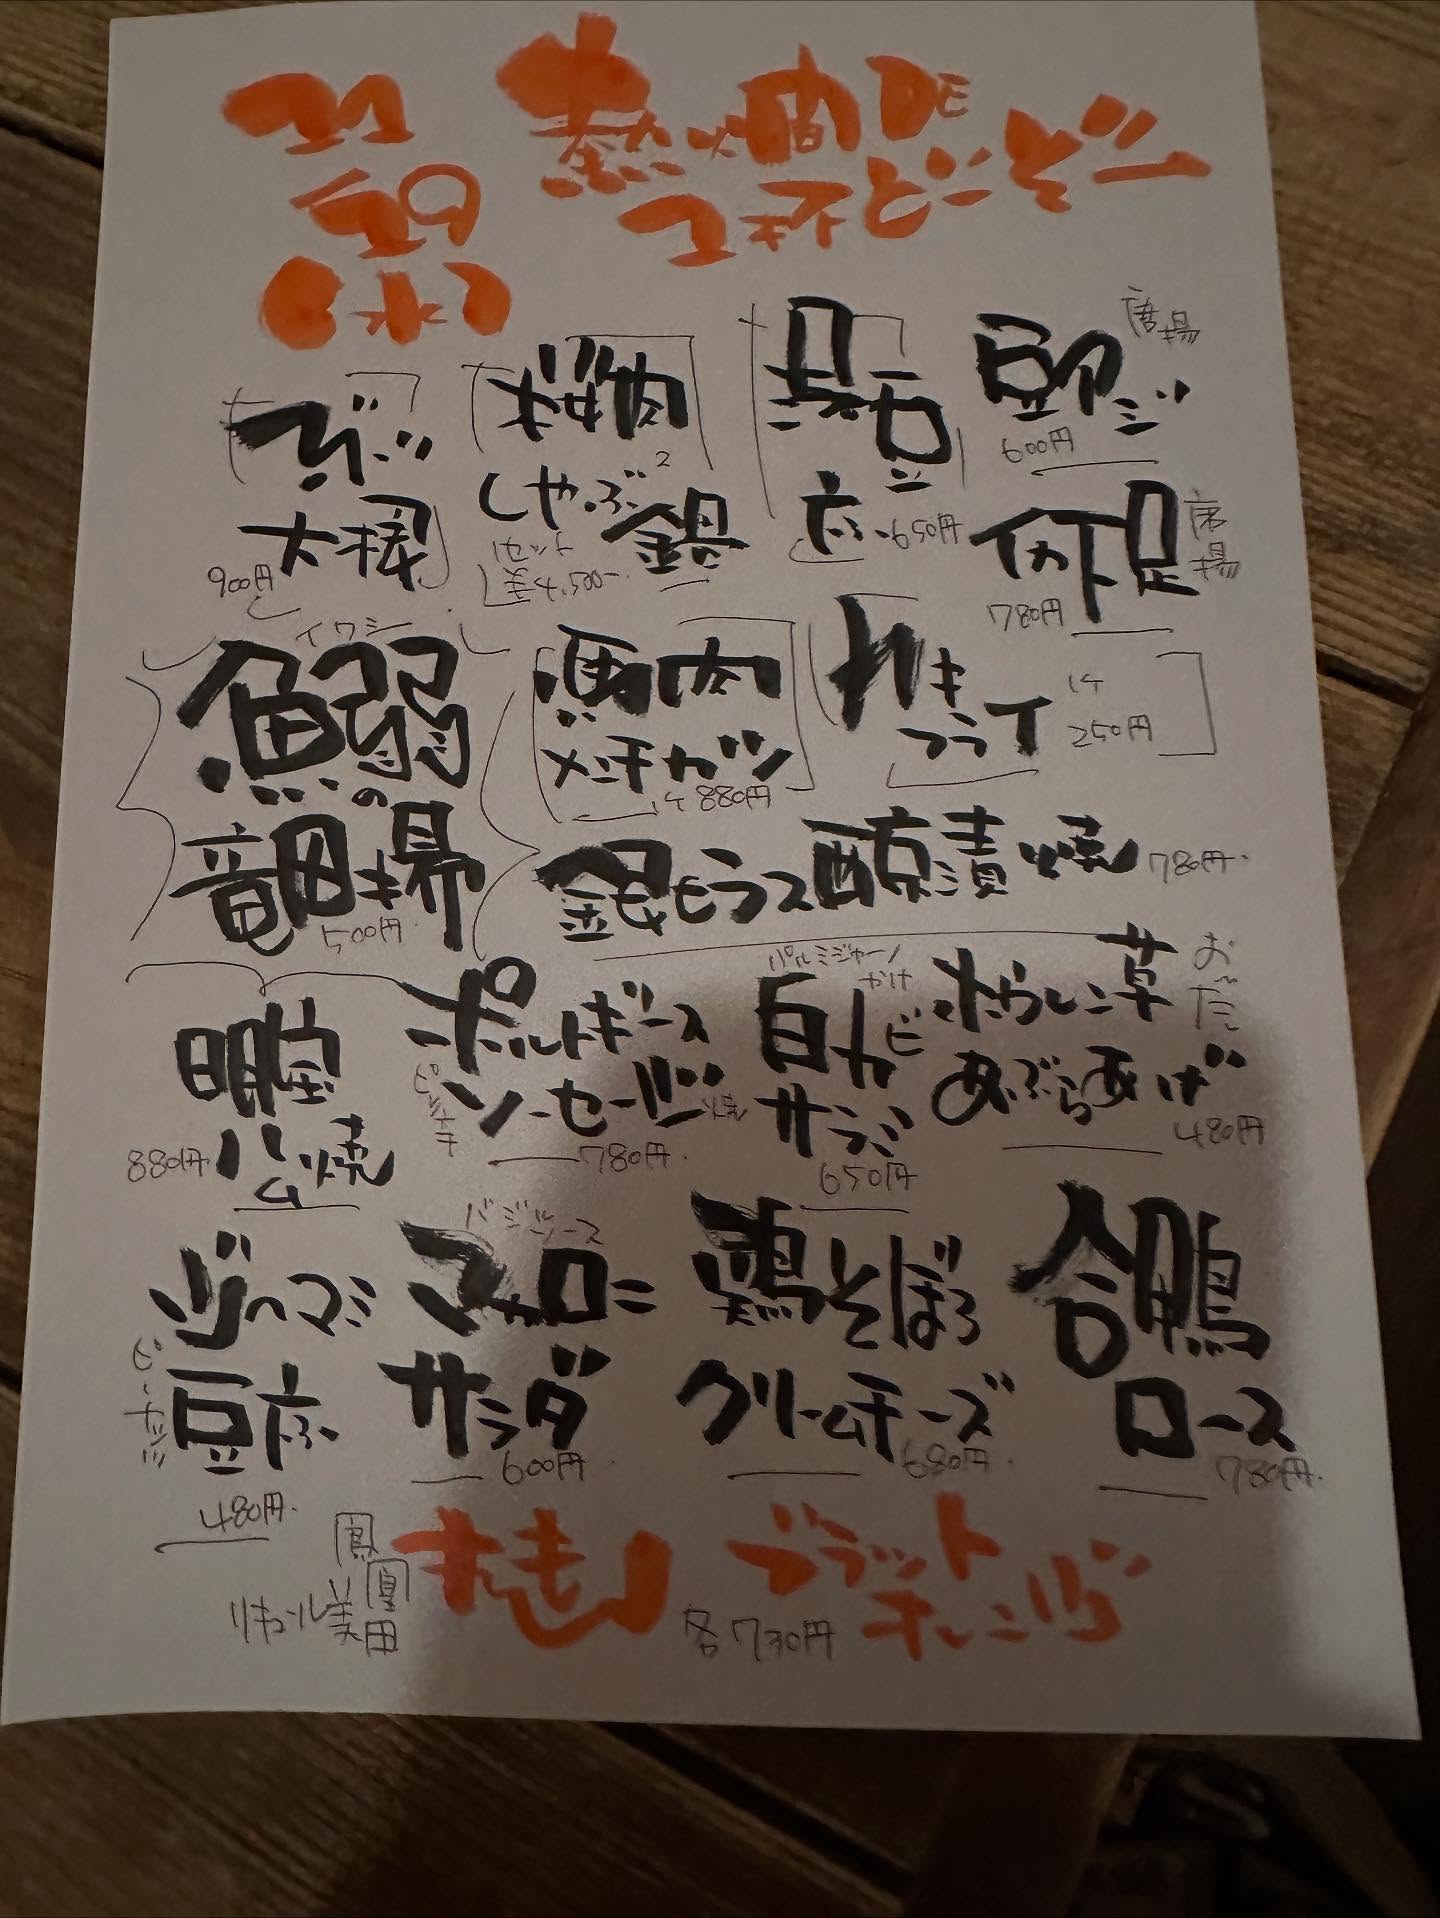 熱燗DE
豆アジ
唐揚
600円
下足
唐揚
780円
650円
桜肉
しゃぶ2
鍋
1セット
4,500-
ブリ
大根
900円
イワシ
鰯の
竜田揚
500円
馬肉
メンチカツ
1ケ 880円
カキ
フライ
1ケ
250円
銀ヒラス西京漬焼
780円
明宝
ハム焼
880円
ポルトギース
ソーセージ焼
780円
パルミジャーノ
かけ
白カビ
サラミ
650円
あぶらあげ
480円
ピーナッツ
豆ふ
480円
バジルソース
マカロニ
サラダ
600円
鶏そぼろ
クリームチーズ
680円
合鴨
ロース
780円
鳳凰美田
リキュール
各730円
ブラット
オレンジ